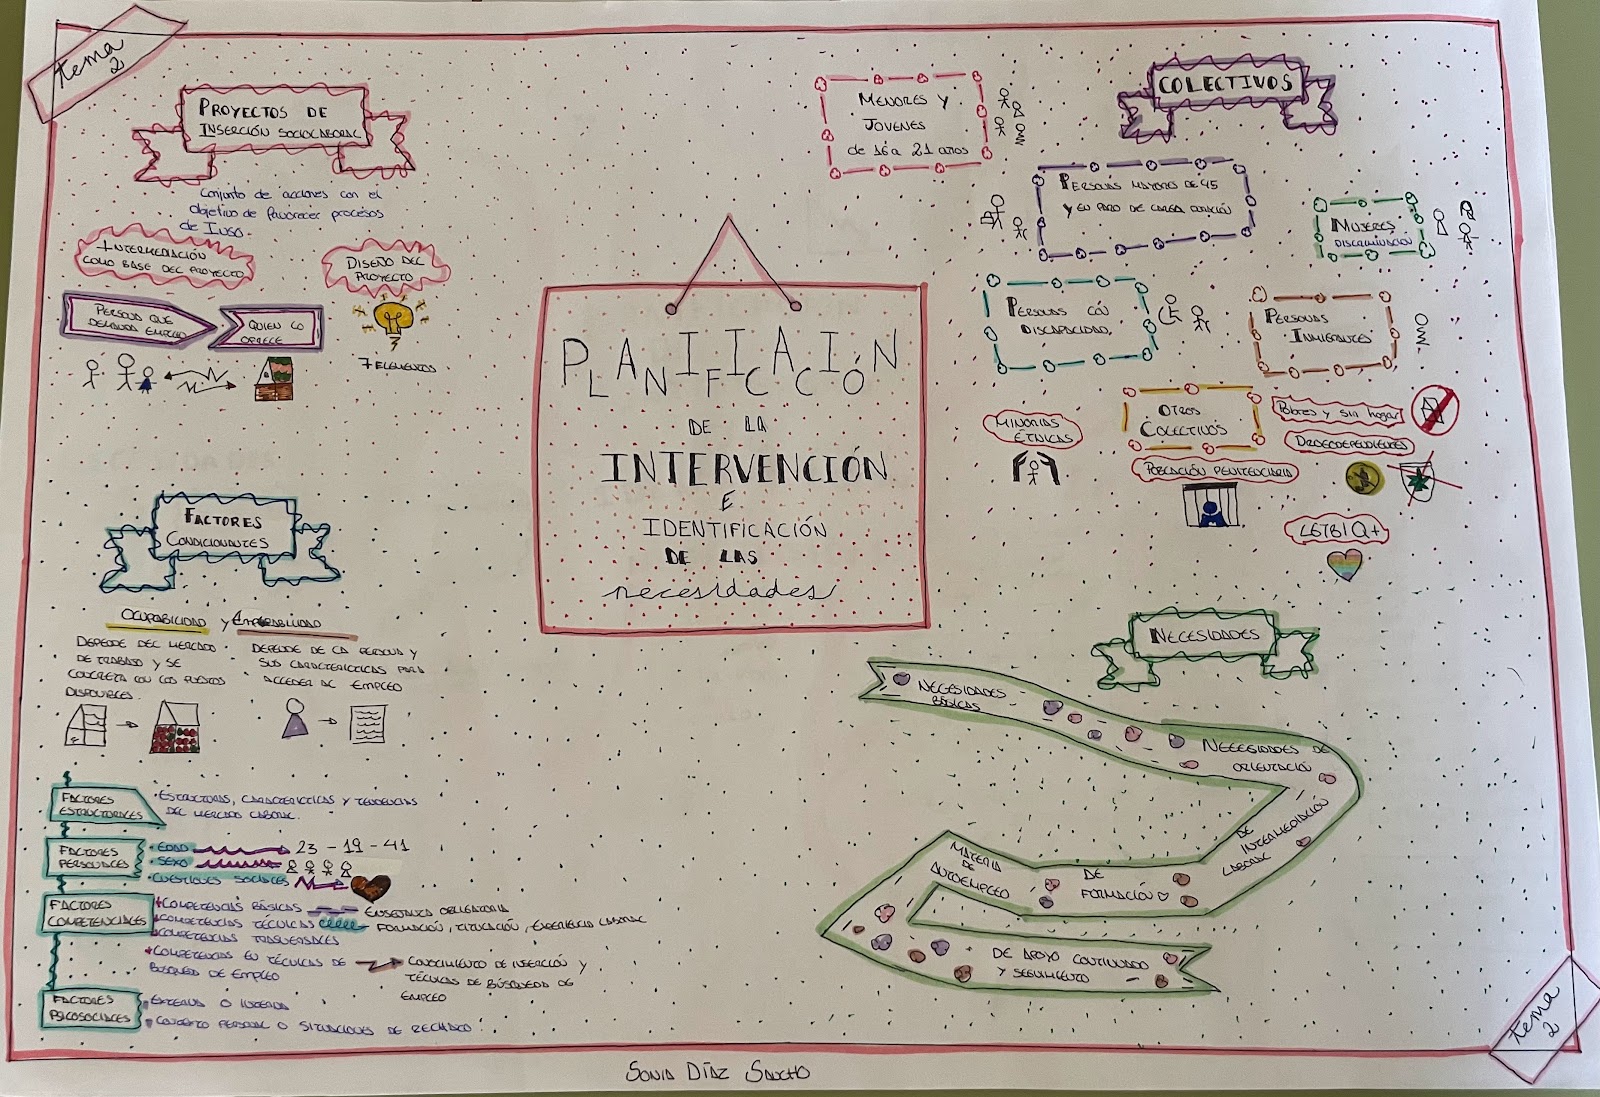 tema
2
PROYECTOS DE
INSERCIÓN SOCIOLABORAL
Conjunto de acciones con el
objetivo de favorecer procesos
de INSO.
INTERMEDIACIÓN
COMO BASE DEL PROYECTO
DISEÑO DEL
PROYECTO
PERSONA QUE
DEMANDA EMPLEO
QUIEN LO
OFRECE
7 ELEMENTOS
FACTORES
CONDICIONANTES
OCUPABILIDAD y EMPLEABILIDAD
DEPENDE DEL MERCADO
DE TRABAJO Y SE
CONCRETA CON LOS PUESTOS
DISPONIBLES
DEPENDE DE LA PERSONA Y
SUS CARACTERÍSTICAS PARA
ACCEDER AL EMPLEO
FACTORES
ESTRUCTURALES
· ESTRUCTURAS, CARACTERÍSTICAS Y TENDENCIAS
DEL MERCADO LABORAL.
FACTORES
PERSONALES
· EDAD 23 - 19 - 41
· SEXO
· CUESTIONES SOCIALES
FACTORES
COMPETENCIALES
COMPETENCIAS BÁSICAS ENSEÑANZA OBLIGATORIA
COMPETENCIAS TÉCNICAS FORMACIÓN, TITULACIÓN, EXPERIENCIA LABORAL
COMPETENCIAS TRANSVERSALES
COMPETENCIAS EN TÉCNICAS DE
BÚSQUEDA DE EMPLEO
CONOCIMIENTO DE INSERCIÓN Y
TÉCNICAS DE BÚSQUEDA DE
EMPLEO
FACTORES
PSICOSOCIALES
EXTERNA O INTERNA
CONTEXTO PERSONAL O SITUACIONES DE RECHAZO
PLANIFICACIÓN
DE LA
INTERVENCIÓN
E
IDENTIFICACIÓN
DE LAS
necesidades
COLECTIVOS
MENORES Y
JOVENES
de 16 a 21 años
PERSONAS MAYORES DE 45
Y EN PARO DE LARGA DURACIÓN
MUJERES
DISCRIMINACIÓN
PERSONAS CON
DISCAPACIDAD
PERSONAS
INMIGRANTES
OTROS
COLECTIVOS
MINORIAS
ÉTNICAS
POBLACIÓN PENITENCIARIA
Pobres y sin hogar
DROGODEPENDIENTES
LGTBIQ+
NECESIDADES
NECESIDADES
BÁSICAS
NECESIDADES DE
ORIENTACIÓN
DE
INTERMEDIACIÓN
LABORAL
DE
FORMACIÓN ♡
MATERIA
DE
AUTOEMPLEO
DE APOYO CONTINUADO
Y SEGUIMIENTO
tema
2
SONIA DÍAZ SANCHO